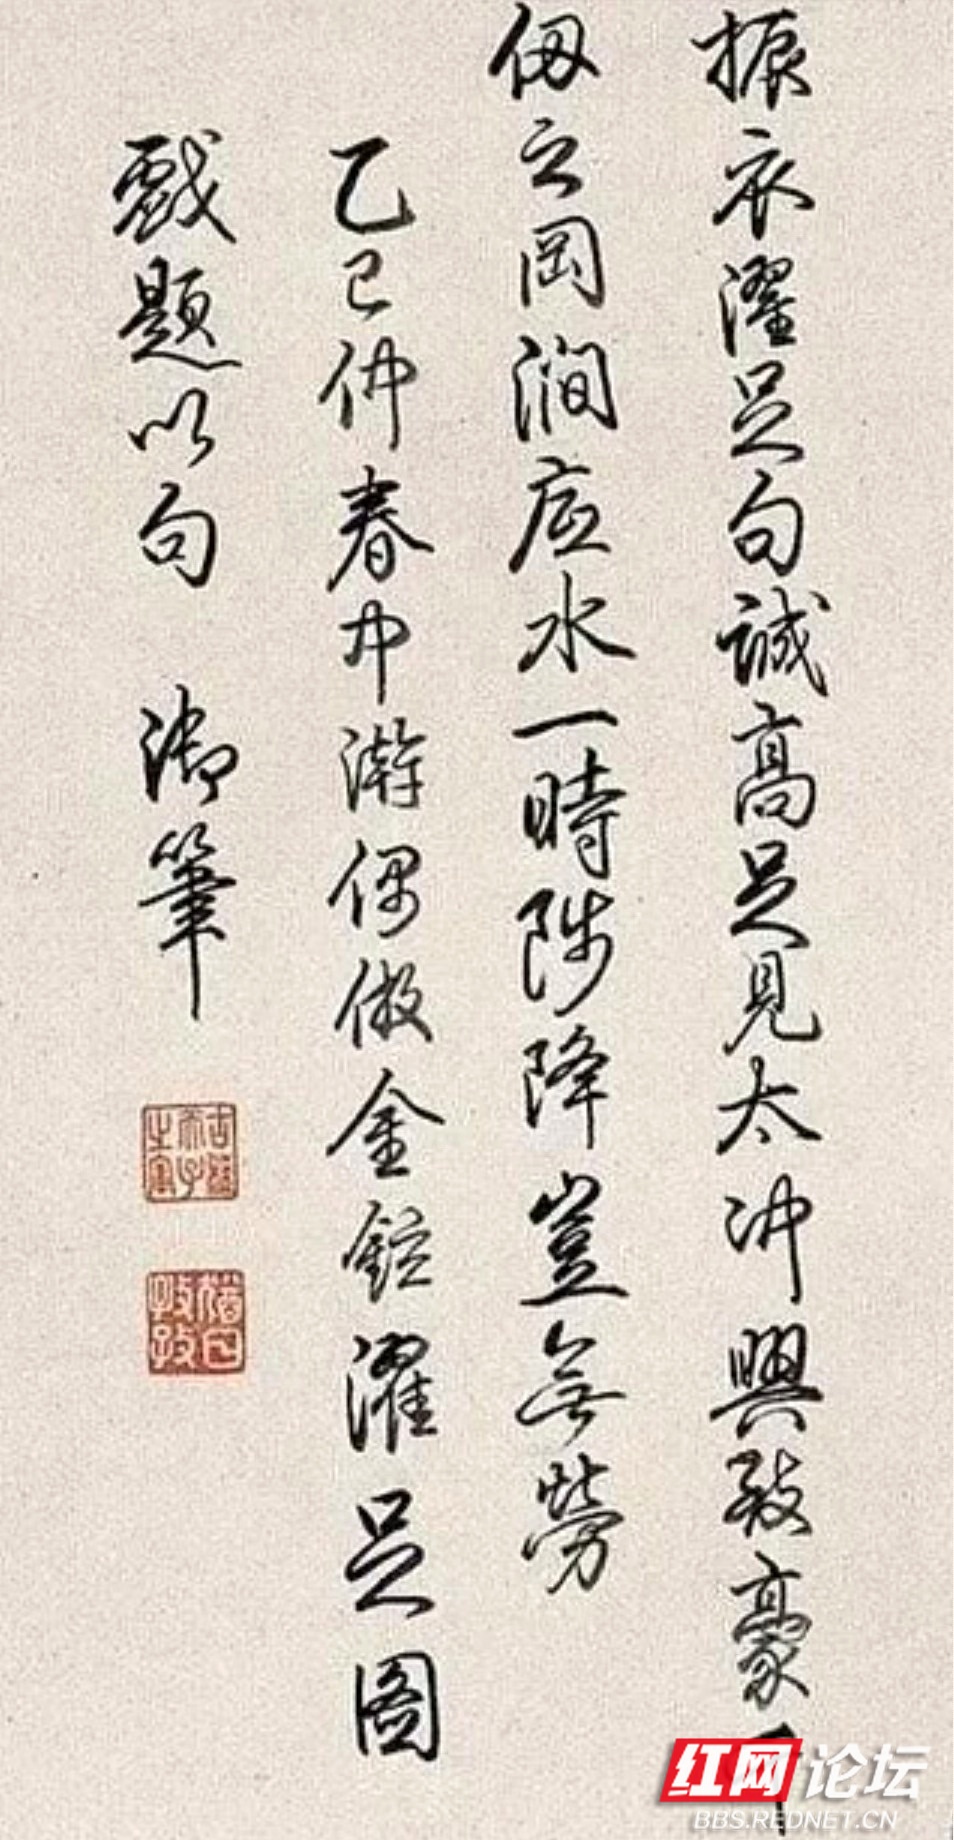 振衣濯足句誠高足見太沖興致豪千
仭之岡澗底水一時陟降豈無勞
乙巳仲春中澣偶倣金濯足圖
戲題以句 御筆
古稀天子之寶
猶日孜孜
红网论坛
BBS.REDNET.CN